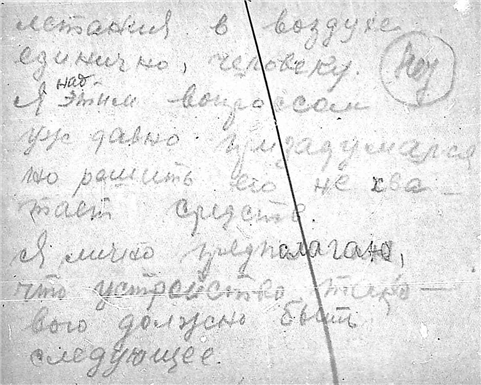 летания в воздухе
единично, человеку.
над
Я этим вопроссом
уж давно призадумался
но решить его не хва-
тает средств.
Я лично предполагаю,
что устройство тако-
вого должно быть
следующее.